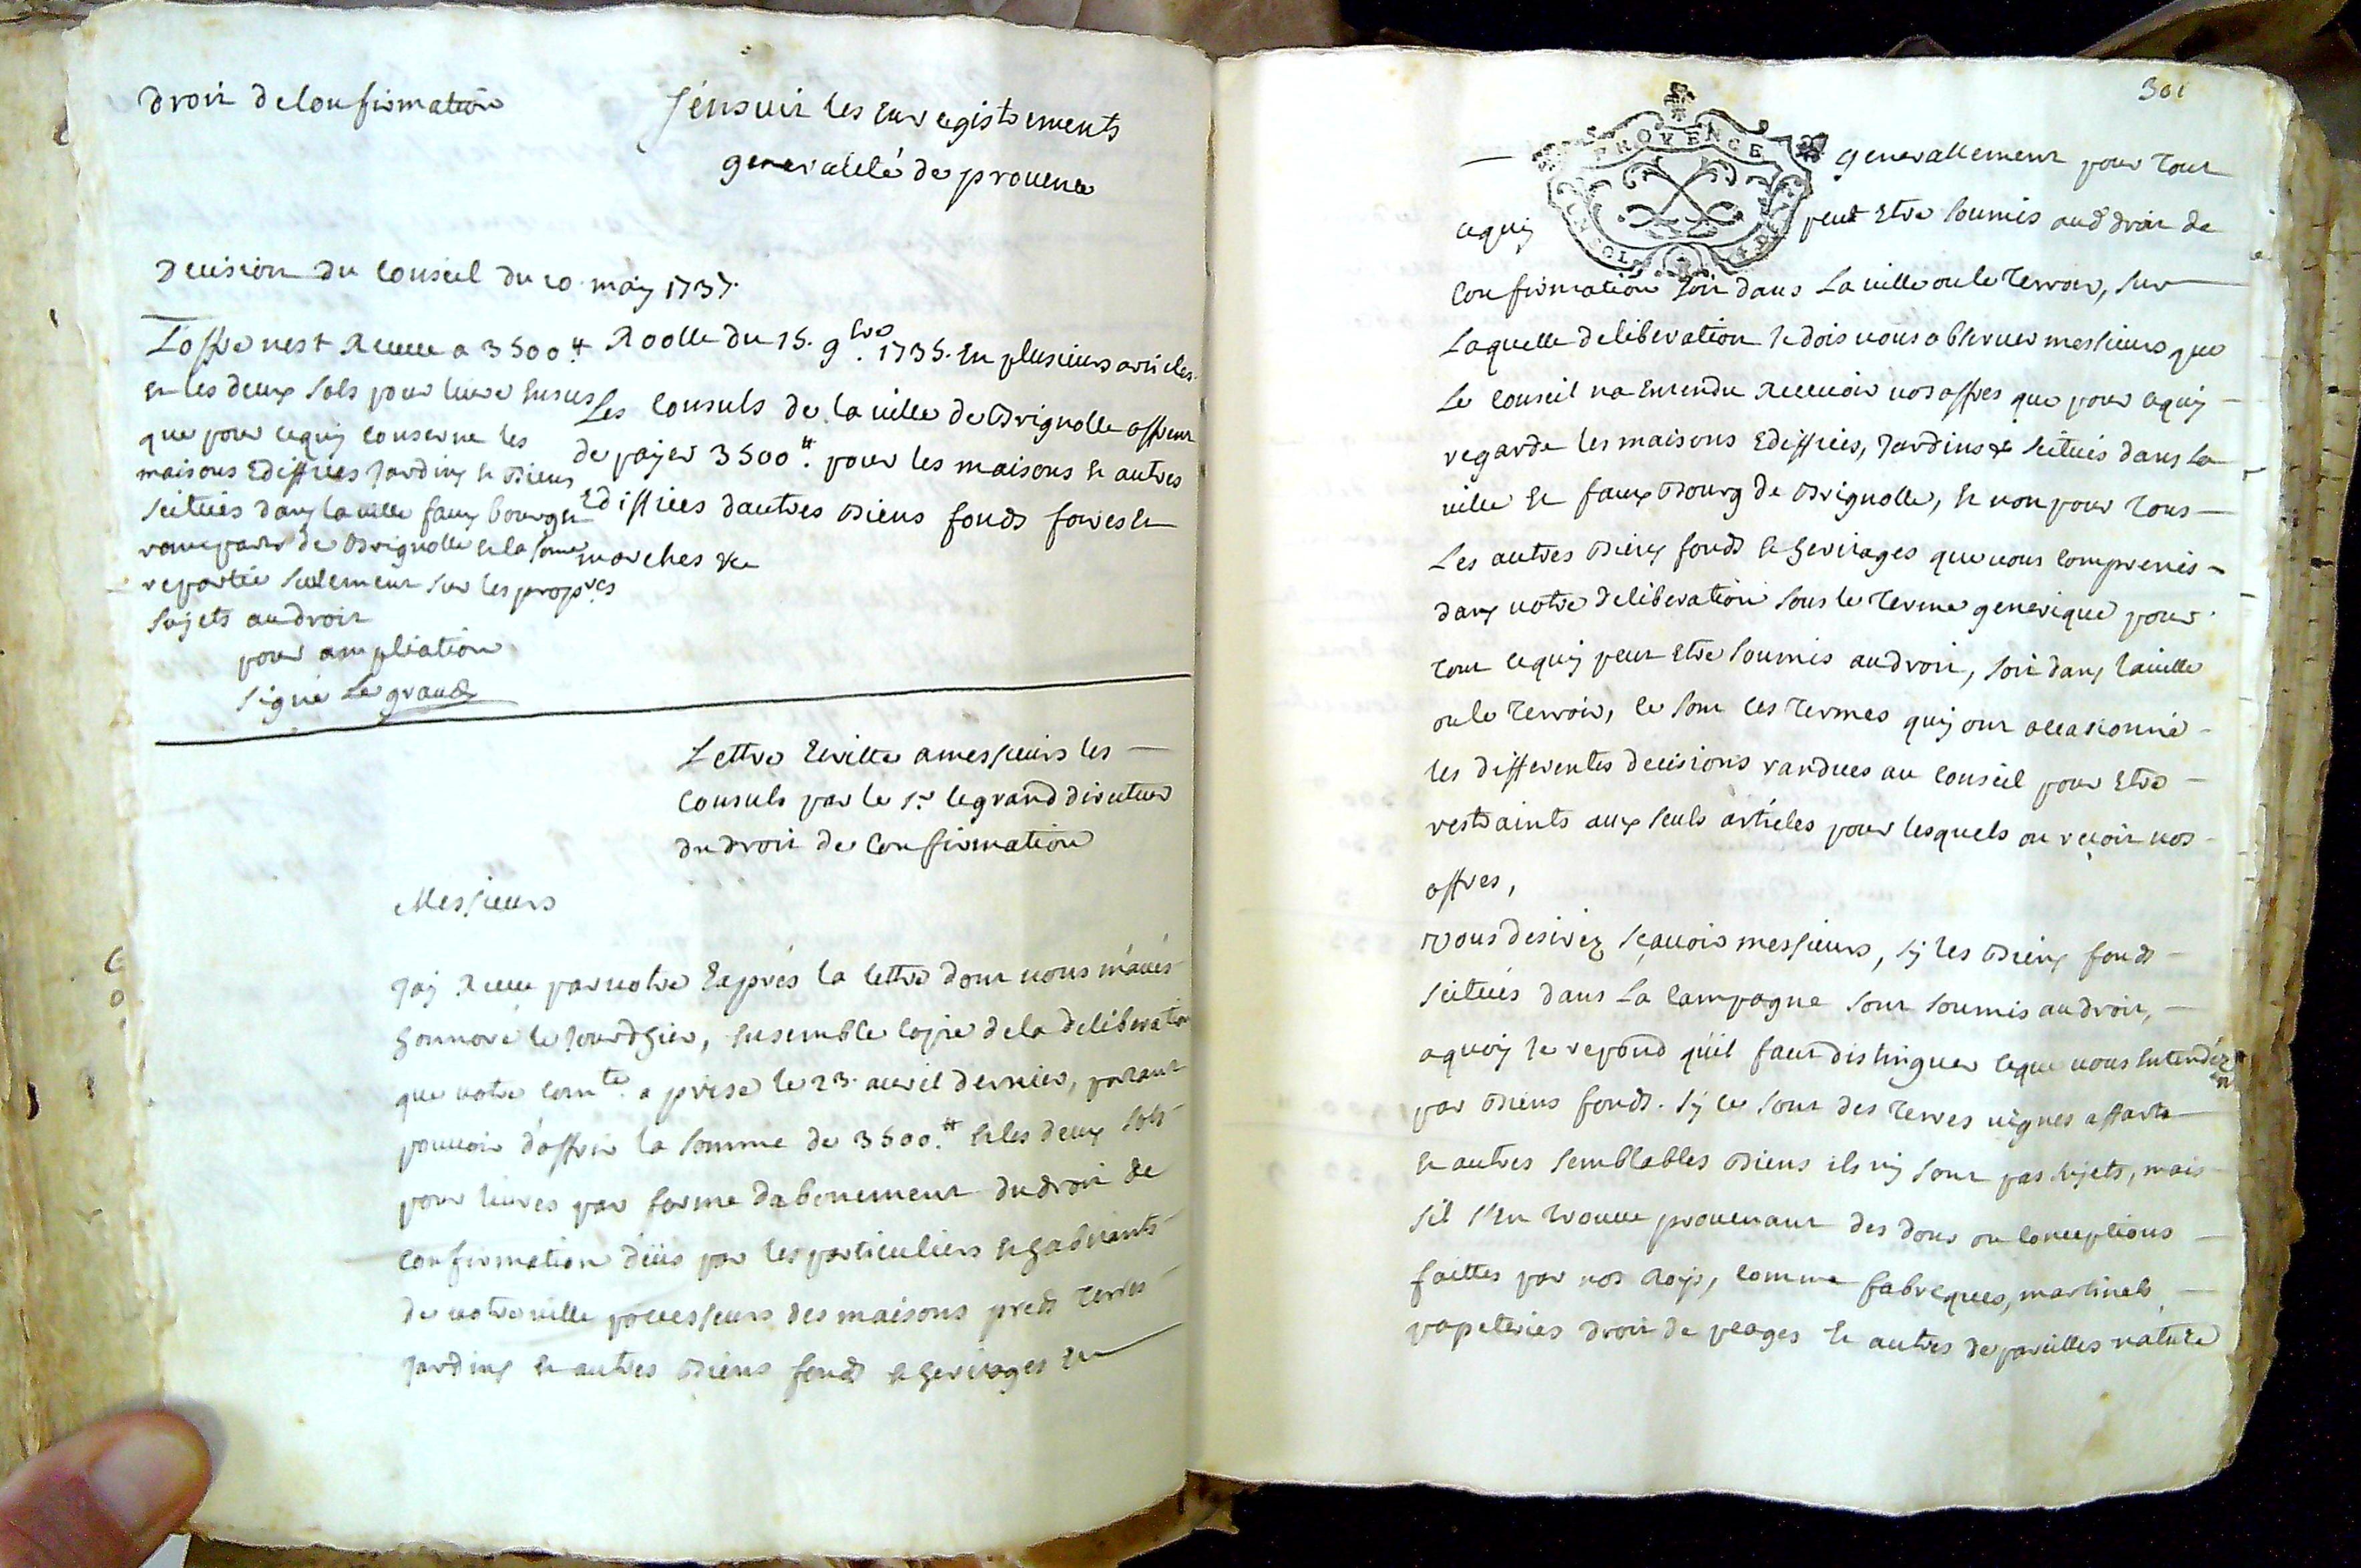 droit de Confirmation
S'énsuit les Enregistrements
generalité de provence
Decision du Conseil du 20 may 1737.
L'offre nest Receue a 3500 ₶
et les deux sols pour livre Ensus
que pour cequy conserne les
maisons Ediffices Jardins et Biens
scitués dans la ville faux bourgs et
ramparts de Brignolle et la somme
repartie seulement sur les prop.res
sujets au droit
pour ampliation
signé Le grand
Roolle du 15. 9bre. 1735. En plusieurs articles.
Les Consuls de la ville de Brignolle offrent
de payer 3500 ₶. pour les maisons et autres
Ediffices dautres Biens fonds foires et
marches &c
Lettre Ecritte a messieurs les
Consuls par le Sr. legrand directeur
du droit de Confirmation
Messieurs
Jay Receu par votre Exprés la lettre dont vous m'avés
honnoré le Jourdhier, Ensemble copie de la deliberation
que votre Com.te a prise le 23. avril dernier, portant
pouvoir d'offrir la somme de 3500.₶ et les deux sols
pour livres par forme dabonement du droit de
Confirmation deüs par les particuliers et habitants
de votre ville possesseurs des maisons preds terres
Jardins et autres Biens fonds et heritages et
301
PROVENCE
generallement pour tout
cequy peut Etre soumis aud droit de
Confirmation soit dans La ville ou le terroir, sur
Laquelle deliberation Je dois vous observer messieurs que
Le Conseil na Entendu Recevoir vos offres que pour cequy
regarde les maisons Ediffices, Jardins & scitués dans la
ville et faux Bourg de Brignolle, et non pour tous
Les autres Biens fonds et heritages que vous comprenés
dans votre deliberation sous le terme generique pour
tout cequy peut Etre soumis au droit, soit dans laville
ou le terroir, Ce sont les termes quy ont occasionné
les differentes decisions randues au Conseil pour Etre
restraints aux seuls articles pour lesquels on reçoit vos
offres,
Vous desirez sçavoir messieurs, sy les Biens fonds
scitués dans La Campagne sont soumis au droit,
aquoy Je repond qu'il faut distinguer ceque vous Entendéz
par Biens fonds. sy ce sont des terres vignes
et autres semblables Biens ils ny sont pas sujets, mais
sil s'En trouve provenant des dons ou Conceptions
faittes par nos Roys, comme fabreques, martinets
papeteries droit de peages et autres de pareilles nature